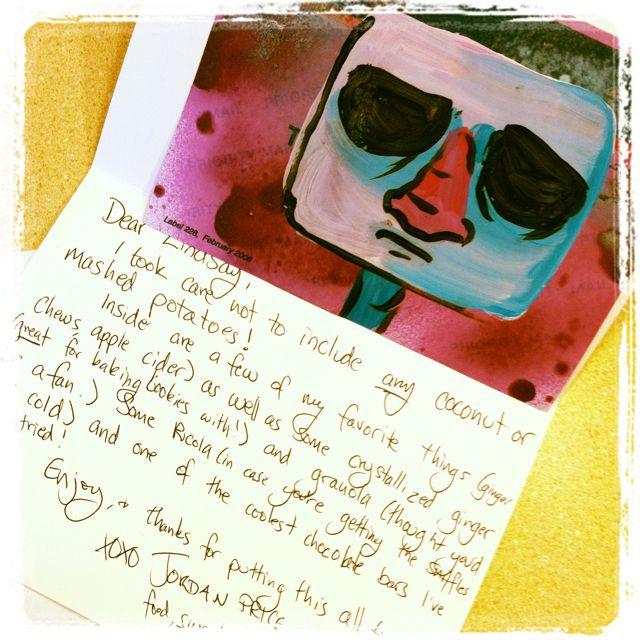 MAIL PRIORITY
PRIORITY MAIL
Label 228, February 2008
Dear Lindsay,
I took care not to include any coconut or
mashed potatoes!
Inside are a few of my favorite things (ginger
Chews apple cider) as well as some crystallized ginger
(great for baking cookies with!) and granola (thought you'd
a fan.) Some Ricola (in case you're getting the sniffles
cold) and one of the coolest chocolate bars I've
tried!
Enjoy, + thanks for putting this all
XOXO JORDAN PRICE
food,